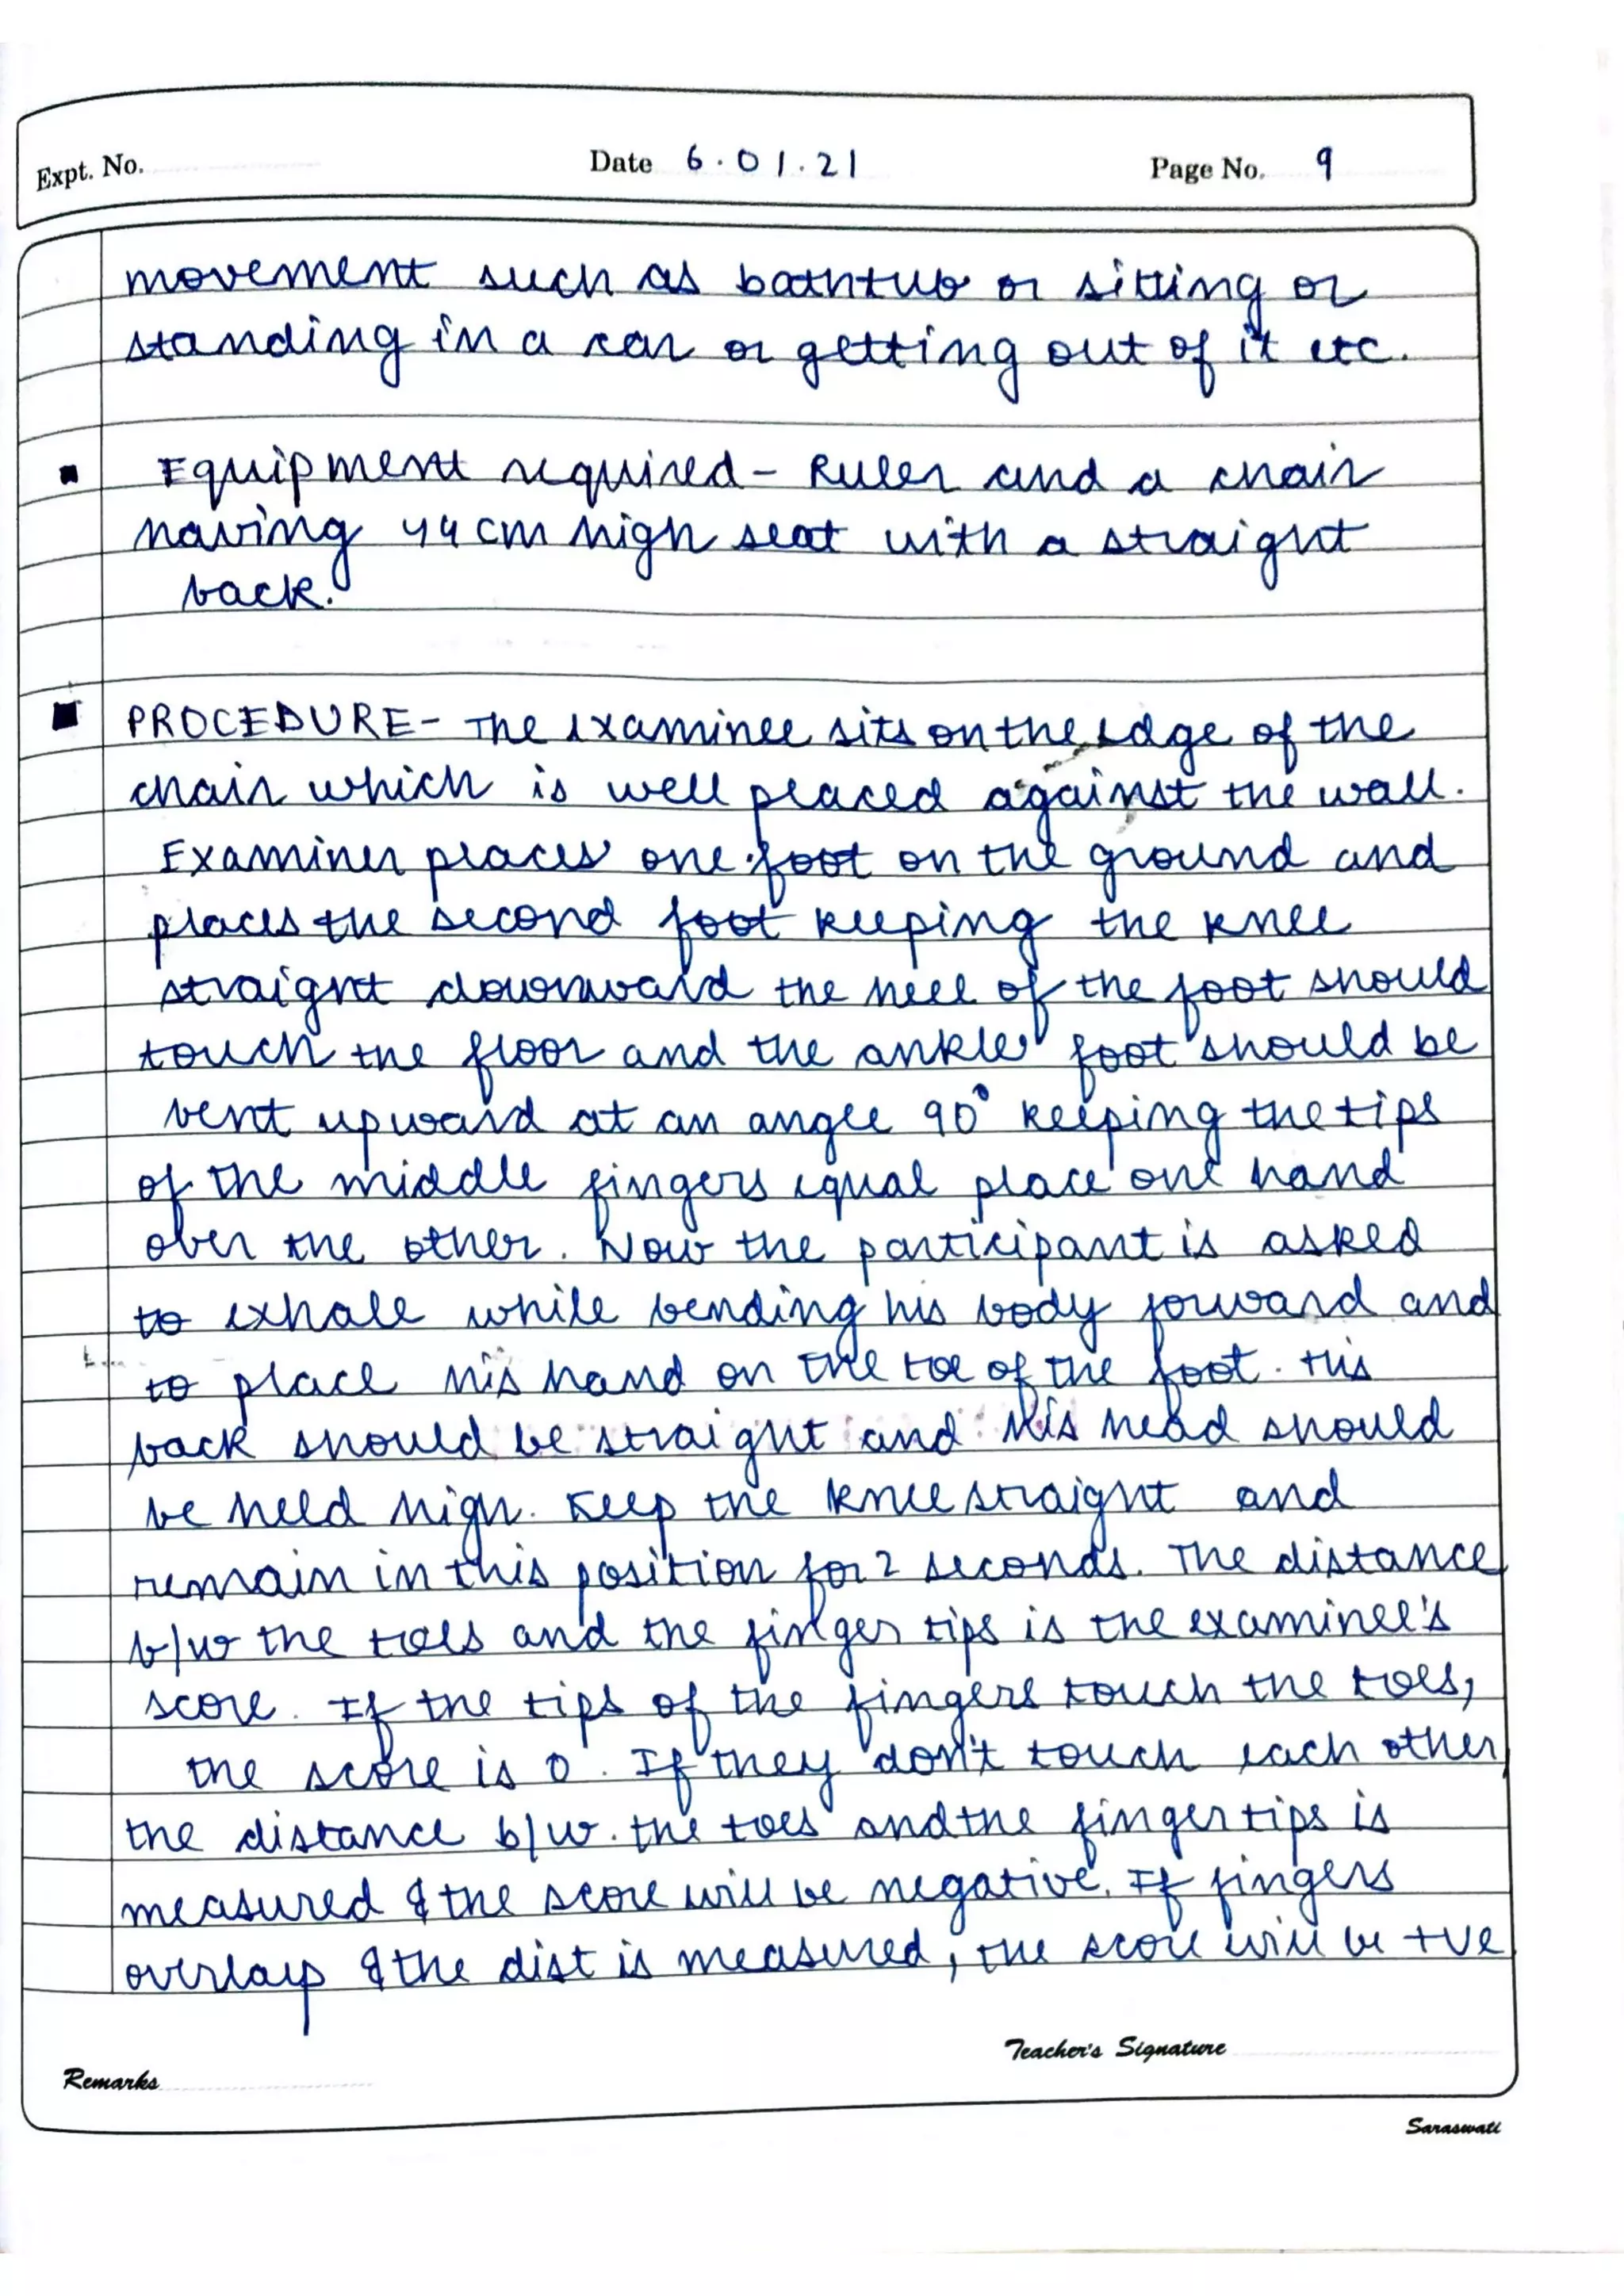 Expt. No. Date 6.01.21 Page No. 9
movement such as bathtub or sitting or
standing in a car or getting out of it etc.
▪ Equipment required - Ruler and a chair
having 44 cm high seat with a straight
back.
▪ PROCEDURE - The examinee sits on the edge of the
chair which is well placed against the wall.
Examiner places one foot on the ground and
places the second foot keeping the knee
straight downward the heel of the foot should
touch the floor and the ankle foot should be
bent upward at an angle 90° keeping the tips
of the middle fingers equal place one hand
over the other. Now the participant is asked
to exhale while bending his body forward and
to place his hand on the toe of the foot. His
back should be straight and his head should
be held high. Keep the knee straight and
remain in this position for 2 seconds. The distance
b/w the toes and the finger tips is the examinee's
score. If the tips of the fingers touch the toes,
the score is 0. If they don't touch each other
the distance b/w. the toes and the finger tips is
measured & the score will be negative. If fingers
overlap & the dist is measured, the score will be +ve
Teacher's Signature
Remarks
Saraswati